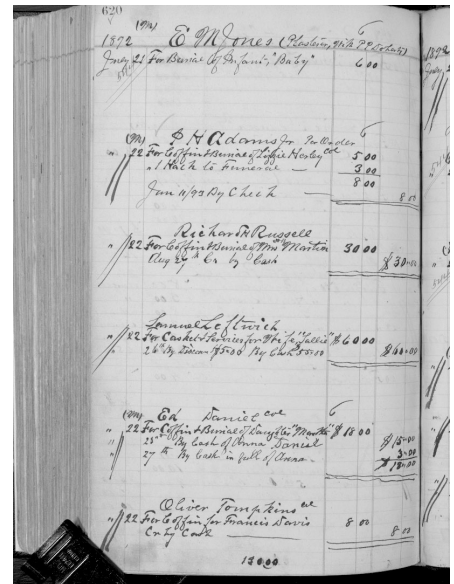 620
1892 E M Jones (Plasterer, with P P Doherty)
21 For Burial of Infant, "Baby" 6 00
P H Adams Jr Per Order
" 22 For Coffin & Burial of Lizzie Harley col 5 00
" 1 Hack to Funeral — 3 00
8 00
Jan 11/93 By Check — 8 00
Richard H Russell
" 22 For Coffin & Burial of Mrs Martin 30 00
Aug 27th Cr by Cash $ 30.00
Samuel Leftwich
" 22 For Casket & Services for Wife, "Sallie" $ 60 00
26th By Discount $5.00 By Cash 55.00 $ 60.00
Ed Daniel col
" 22 For Coffin & Burial of Daughter "Martha" $ 18 00
25th By Cash of Anna Daniel $ 15.00
27th By Cash in full of Anna 3.00
$ 18.00
Oliver Tompkins col
" 22 For Coffin for Francis Davis 8 00
Cr by Cash — 8 00
130.00